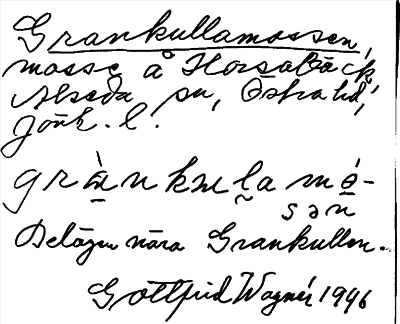 Grankullamossen,
mosse å Horsabäck,
Alseda sn, Östra hd,
Jönk. l.
grànkuḷa mó-
sən
Belägen nära Grankullen.
Gottfrid Wagnér 1946